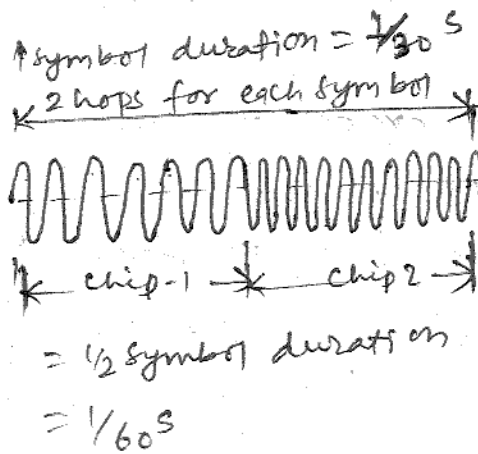 1 symbol duration = 1/30 s
2 hops for each symbol
chip-1 chip 2
= 1/2 symbol duration
= 1/60 s